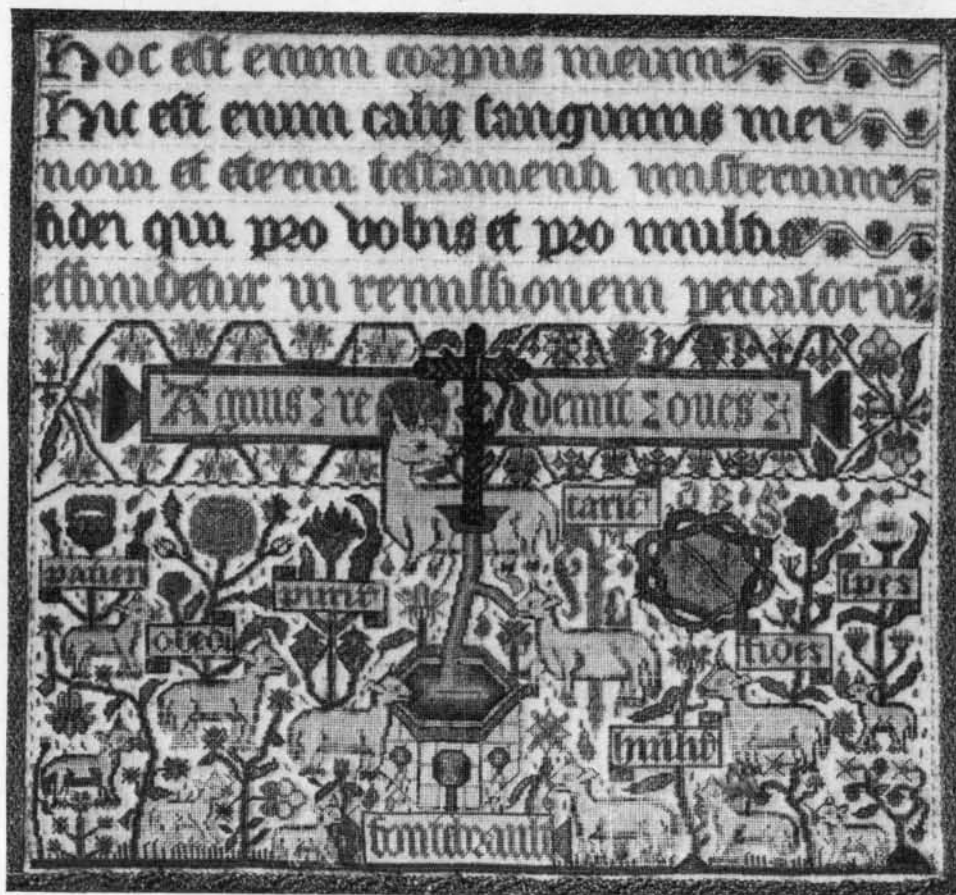 Hoc est enim corpus meum
Hic est enim calix sanguinis mei
novi et eterni testamenti misterium
fidei qui pro vobis et pro multis
effundetur in remissionem peccatorū
Agnus re demit oves
carit
paven
purit
spes
obedi
fides
humi
fontebrauh